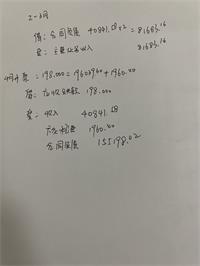 2-3月
借:合同负债 40841.58×2=81683.16
贷:主营业务收入 81683.16
4月开票:198.000=196039.60+1960.40
借:应收账款 198.000
贷:收入 40841.58
应交税费 1960.40
合同负债 155198.02